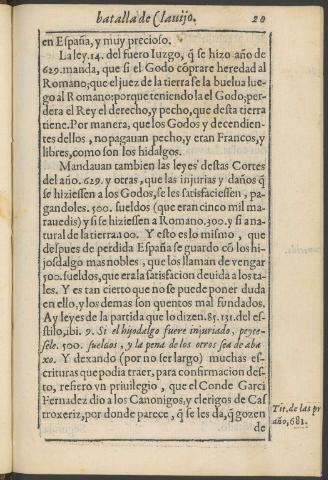 batalla de Clauijo.
20
en España, y muy precioso.
La ley.14. del fuero Iuzgo, q̃ se hizo año de
629. manda, que si el Godo cõprare heredad al
Romano; que el juez de la tierra se la buelua lue-
go al Romano: porque teniendo la el Godo; per-
dera el Rey el derecho, y pecho, que desta tierra
tiene. Por manera, que los Godos y decendien-
tes dellos, no pagauan pecho, y eran Francos, y
libres, como son los hidalgos.
Mandauan tambien las leyes destas Cortes
del año. 629. y otras, que las injurias y daños q̃
se hiziessen a los Godos, se les satisfaciessen, pa-
gandoles. 500. sueldos (que eran cinco mil ma-
rauedis) y si se hiziessen a Romano. 300. y si a na-
tural de la tierra. 100. Y esto es lo mismo, que
despues de perdida España se guardo cõ los hi-
josdalgo mas nobles, que los llaman de vengar
500. sueldos, que era la satisfacion deuida a los ta-
les. Y es tan cierto que no se puede poner duda
en ello, y los demas son quentos mal fundados.
Ay leyes de la partida que lo dizen. 85. 131. del es-
tilo, ibi. 9. Si el hijodalgo fuere injuriado, peyte-
sele. 500. sueldos, y la pena de los otros sea de aba
xo. Y dexando (por no ser largo) muchas es-
crituras que podia traer, para confirmacion des-
to, refiero vn priuilegio, que el Conde Garci
Fernadez dio a los Canonigos, y clerigos de Cas
troxeriz, por donde parece, q̃ se les da, q̃ gozen
de
Tit. de las pr
año, 681.